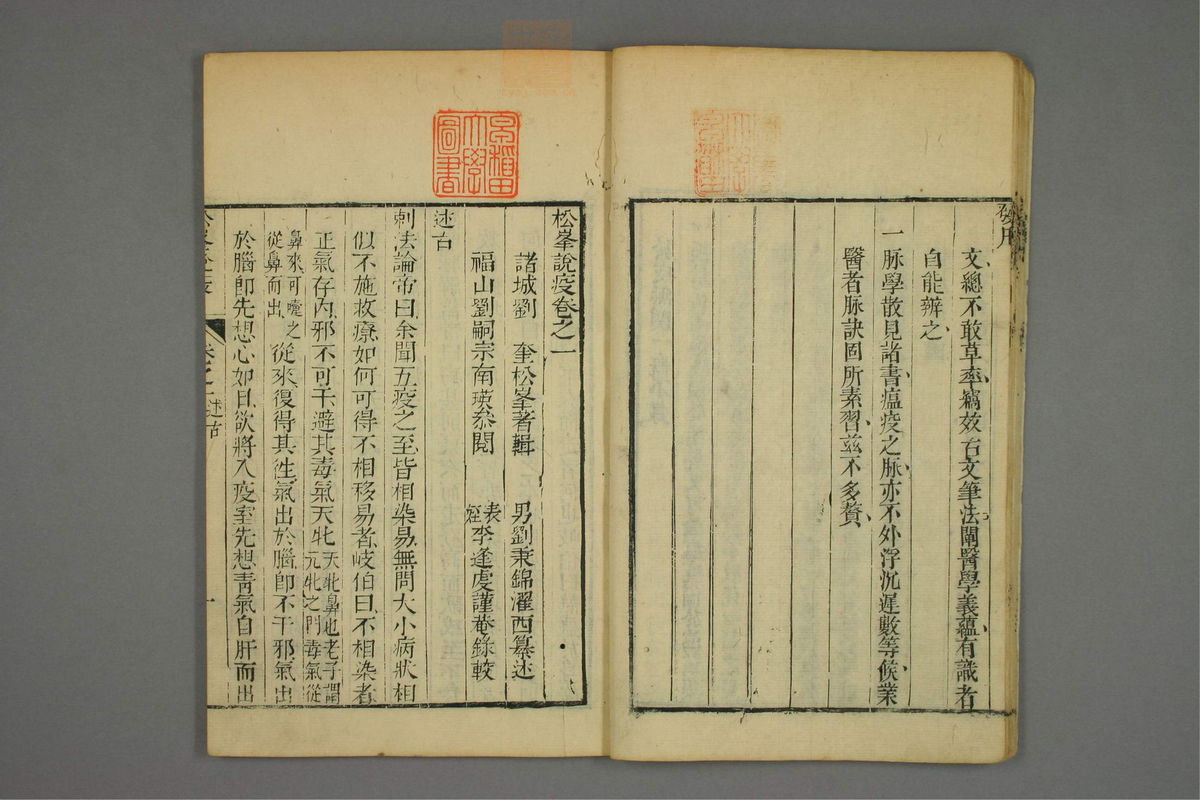 發凡
文總不敢草率竊效古文筆法闡醫學義蘊有識者
自能辨之
一脉學散見諸書瘟疫之脉亦不外浮沉遲數等候業
醫者脉訣固所素習兹不多贅
早稻田
大學
圖書
松峯說疫卷之一
諸城劉 奎松峯著輯 男劉秉錦濯西纂述
福山劉嗣宗南瑛叅閱 表姪李逢虔謹菴錄較
述古
刺法論帝曰余聞五疫之至皆相染易無問大小病狀相
似不施救療如何可得不相移易者岐伯曰不相染者
正氣存内邪不可干避其毒氣天牝天牝鼻也老子謂元牝之門毒氣從
鼻來可嚏之從鼻而出從來復得其徃氣出於腦卽不干邪氣出
於腦卽先想心如日欲將入疫室先想靑氣自肝而出
卷之一 述古 一